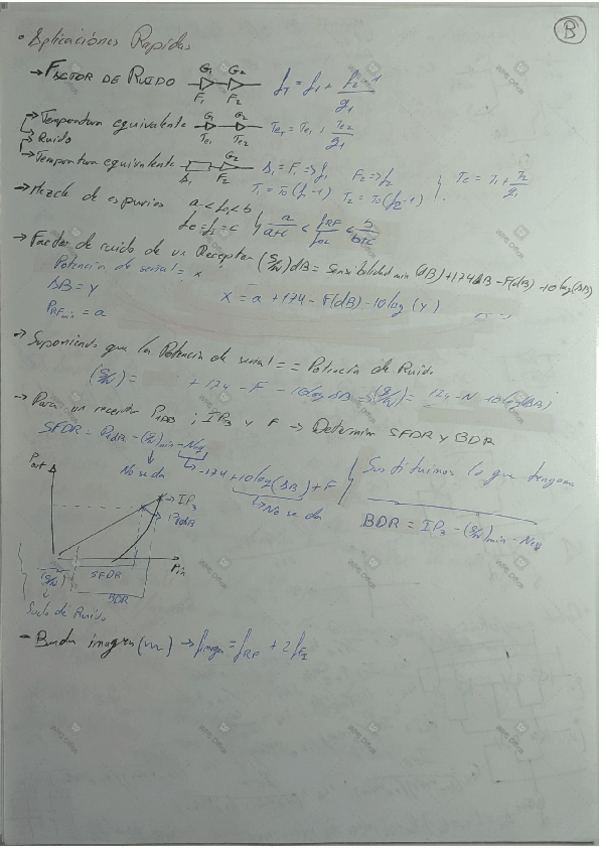 B
• Aplicaciones Rapidas
→ FACTOR DE RUIDO G1 G2 F1 F2 f_T = f1 + (f2 - 1)/g1
→ Temperatura equivalente G1 G2 Te1 Te2 Te_T = Te1 + Te2/g1
→ Ruido
→ Temperatura equivalente G2 F2 = F1 => f1 F2 => f2
T1 = T0(f1 - 1) T2 = T0(f2 - 1) Te = T1 + T2/g1
→ Mezcla de espurios a < f < b
= c a/(a+c) < fRF/fOL < b/(b+c)
→ Factor de ruido de un Receptor (S/N)dB = Sensibilidad min (dB) + 174 dB - F(dB) - 10 log(ΔB)
Potencia de señal = x
ΔB = y X = a + 174 - F(dB) - 10 log (y)
PRFmin = a
→ Suponiendo que la Potencia de señal == Potencia de Ruido
(S/N) = + 174 - F - 10 log ΔB => (S/N) = 174 - N - 10 log(ΔB)
→ Para un receptor P1dB ; IP3 y F → Determinar SFDR y BDR
SFDR = P1dB - (S/N)min -
No se da -174 + 10 log(ΔB) + F Sustituimos lo que tengamos
No se da
BDR = IP3 - (S/N)min -
Pout
→ IP3
→ P1dB
Pin
(S/N) SFDR
BDR
Suelo de Ruido
- Banda imagen → fimagen = fRF + 2 fFI
WPS Office